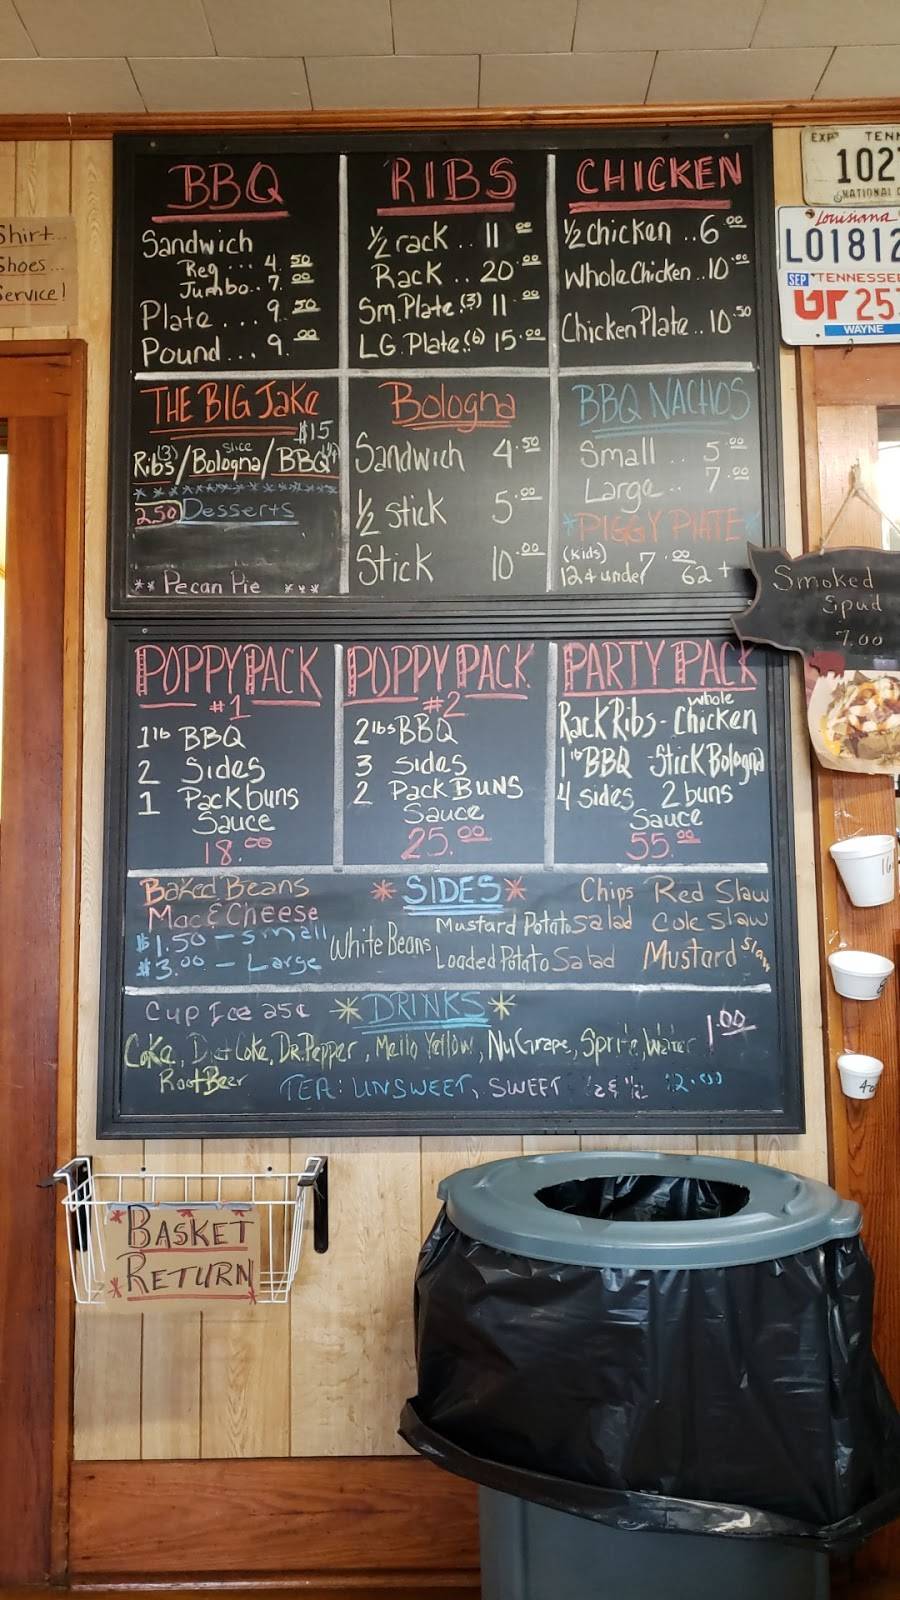 Shirt...
Shoes...
Service!
BBQ
Sandwich
Reg ... 4.50
Jumbo.. 7.00
Plate ... 9.50
Pound ... 9.00
RIBS
½ rack .. 11.00
Rack .. 20.00
Sm. Plate (3) 11.00
LG. Plate.(6) 15.00
CHICKEN
½ chicken .. 6.00
Whole Chicken .. 10.00
Chicken Plate .. 10.50
THE BIG JaKe
$15
Ribs (3) / Bologna slice / BBQ
2.50 Desserts
** Pecan Pie ***
Bologna
Sandwich 4.50
½ stick 5.00
Stick 10.00
BBQ NACHOS
Small .. 5.00
Large .. 7.00
*PIGGY PlATE*
(kids) 7.00
12 & under 62 +
POPPY PACK
#1
1lb BBQ
2 Sides
1 Pack buns
Sauce
18.00
POPPY PACK
#2
2lbs BBQ
3 sides
2 Pack BUNS
Sauce
25.00
PARTY PACK
Rack Ribs - whole Chicken
1lb BBQ - Stick Bologna
4 sides 2 buns
Sauce
55.00
* SIDES *
Baked Beans
Mac & Cheese
$1.50 - small
$3.00 - Large
White Beans
Mustard Potato Salad
Loaded Potato Salad
Chips Red Slaw
Cole Slaw
Mustard Slaw
Cup Ice 25¢ * DRINKS *
Coke, Diet Coke, Dr. Pepper, Mello Yellow, NuGrape, Sprite, Water 1.00
Root Beer
TEA: UNSWEET, SWEET ½ & ½ $2.00
EXP TENN
102
NATIONAL
Louisiana
L01812
SEP TENNESSEE
UT 253
WAYNE
Smoked
Spud
7.00
16
8
4o
*BASKET
*RETURN*